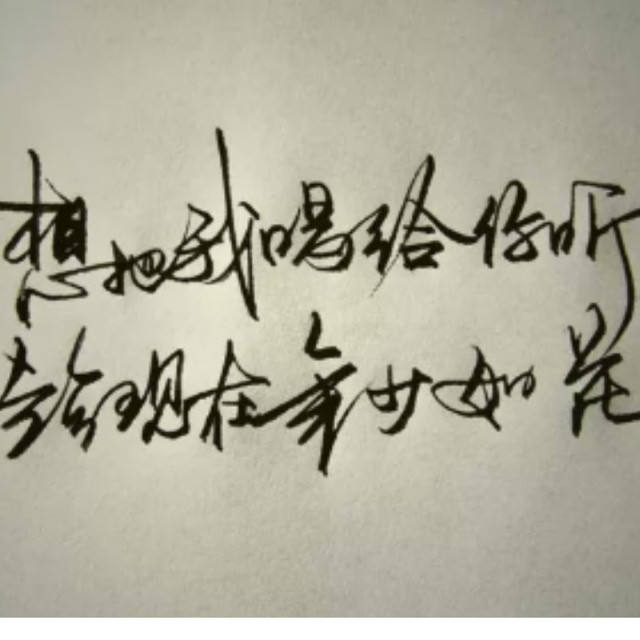 想把我唱给你听
给现在年少如花